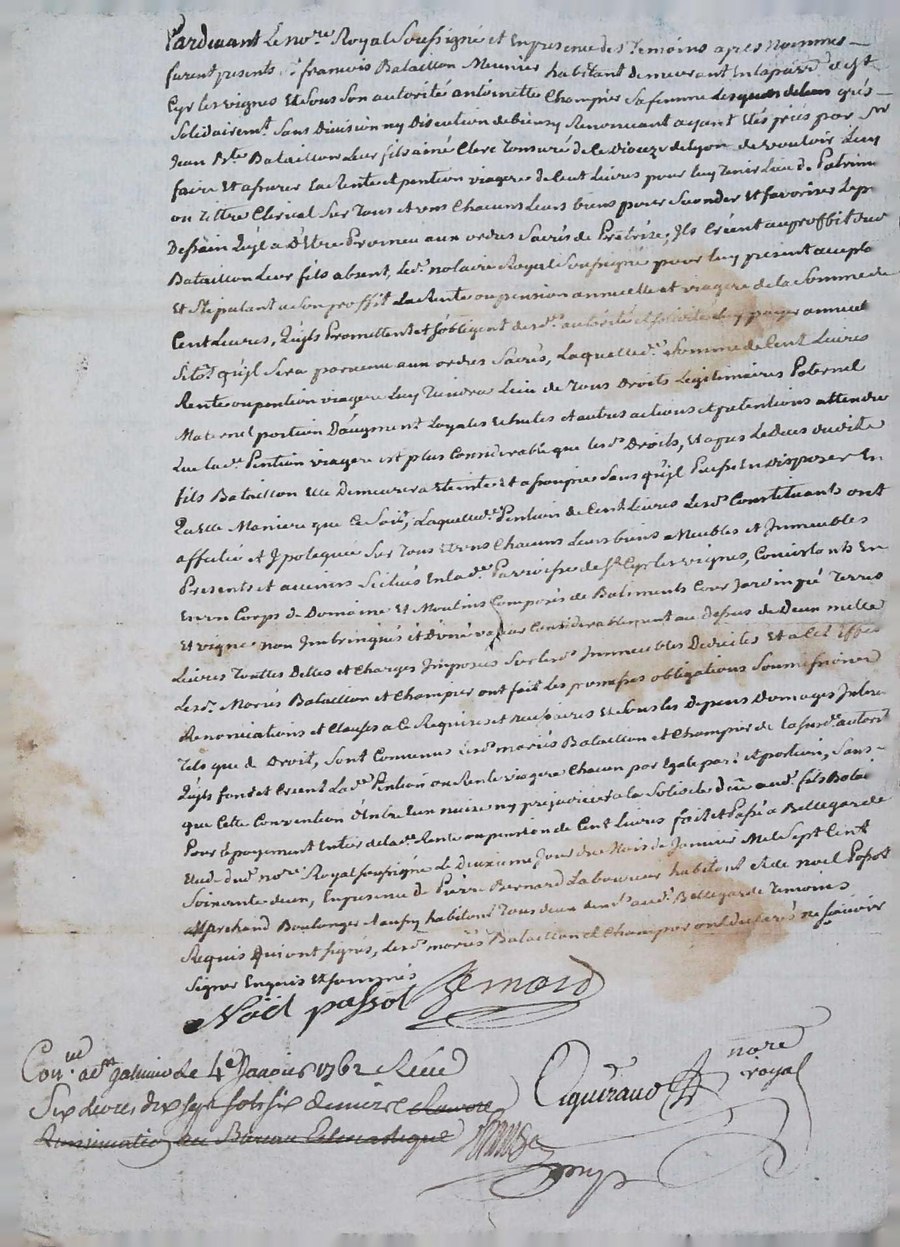 Pardevant Le no.re Royal Soussigné et En presence des Temoins apres Nommés
furent presents S.r francois Bataillon Meunier habitant demeurant En la parr.e de S.t
Cyr les vignes Et sous Son autorité antoinette Champier Sa femme Lesquels de leur grés
Solidairem.t Sans Division ny Discution de biens y Renoncant ayant Etés priés par S.r
Jean B.te Bataillon Leur fils ainé Clerc Tonsuré de le Dioceze de Lyon de vouloir Luy
faire Et assurer La Rente et pention viagere de Cent Livres pour luy Tenir Lieu de Patrim
ou Tittre Clerical Sur Tous et uns Chacuns Leurs biens pour Seconder Et favoriser Le p
Dessain Qu'jl a D'Etre Promeu aux ordres Sacrés de Prétrize, Jls Créent au proffit dud
Bataillon Leur fils absent, Led.t notaire Royal Soussigné pour luy present accepta
Et Stipulant a Son proffit La Rente ou pension annuelle et viagere de la Somme de
Cent Livres, Qu'jls Promettent et s'obligent de lad.e autorité et solidité luy payer annuel
Sitot qu'jl Sera parvenu aux ordres Sacrés, Laquelle d.e Somme de Cent Livres
Rente ou pention viagere Luy Tiendra Lieu de Tous Droits Legitimaires Paternel
Maternel portion D'augment Loyales Echutes et autres actions et pretentions attendu
Que lad.e Pention viagere est plus Considerable que lesd.s Droits, et apres Le Deces dudit
fils Bataillon Elle demeurera Eteinte et assoupie Sans qu'jl Puisse En disposer En
Quelle Maniere que Ce Soit, Laquelle d.e Pention de Cent Livres Lesd.s Constituants ont
affectée et Jpotequée Sur Tous et uns Chacuns Leurs biens Meubles et Jmmeubles
Presents et avenirs Scitués En lad.e Parroisse de S.t Cyr les vignes, Consistants En
En un Corps de Domaine Et Moulins Composés de Batiments Cour Jardin pré Terres
Et vignes non Jmbringués et d'une valeur Considerablement au dessus de Deux mille
Livres Touttes Dettes et Charges Jmposées Sur lesd.s Jmmeubles Deduites Et a Cet Effet
Lesd.s Mariés Bataillon et Champier ont fait Les promesses obligations Soumissions
Renonciations et Clauses a Ce Requises et necessaires Et Sous les Depens Domages Jnter
Tels que de Droit, Sont Convenus Lesd.s mariés Bataillon et Champier de la susd.e autorit
Qu'jls font et Créent La d.e Pention ou Rente viagere Chacun par Egale part et portion, Sans
que Cette Convention d'Entre Eux nuise ny prejudicie a la Solidité düe aud.t fils Batai
Pour le payement Entier de lad.e Rente ou pension de Cent Livres fait et Passé a Bellegarde
Etude dud.t no.re Royal soussigné Le deuxieme Jour du Mois de Janvier Mil Sept Cent
Soixante deux, En presence de Pierre Bernard Laboureur habitant Et de noel Passot
Marchand Boulonger habitant Tous deux aud.t Bellegarde Temoins
Requis Qui ont signés, Lesd.s mariés Bataillon et Champier ont declarés ne sçavoir
Signer Enquis Et sommés
Noël passot Bernard
Con.lé a S.t galmier Le 4.e Janvier 1762 Reçu
Six Livres dix sept sols six deniers
Eiquiraud no.re royal